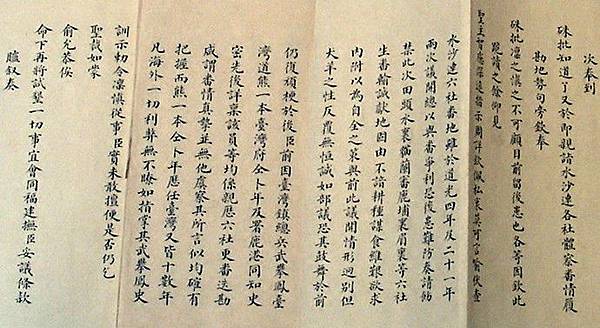 次奉到
硃批知道了又於即親詣水沙連各社體察番情履
勘地勢句旁欽奉
硃批凜之慎之不可顧目前留後患也各等因欽此
跪讀之餘仰見
聖主智慮深遠指示周詳欽佩私衷莫可言喻伏查
水沙連六社番地雖於道光四年及二十一年
兩次議開總以與番爭利恐後患難防奏請飭
禁此次田頭水裏貓蘭審鹿埔裏眉裏等六社
生番輸誠獻地因由不諳耕種謀食維艱欲求
內附以為自全之策與前此議開情形迥別但
犬羊之性反覆無恒誠如部議恐其鼓舞於前
仍復頑梗於後臣前因臺灣鎮總兵武攀鳳臺
灣道熊一本臺灣府仝卜年及署鹿港同知史
密先後詳稟該員等均係親歷六社史番迭勘
咸謂番情真摯並無他虞察其所言似均確有
把握而熊一本仝卜年歷任臺灣又皆十數年
凡海外一切利弊無不瞭如指掌其武攀鳳史
訓示勅令凜慎從事臣實未敢擅便是否仍乞
聖裁如蒙
俞允恭俟
命下再將試墾一切事宜會同福建撫臣妥議條款
臚敘奏